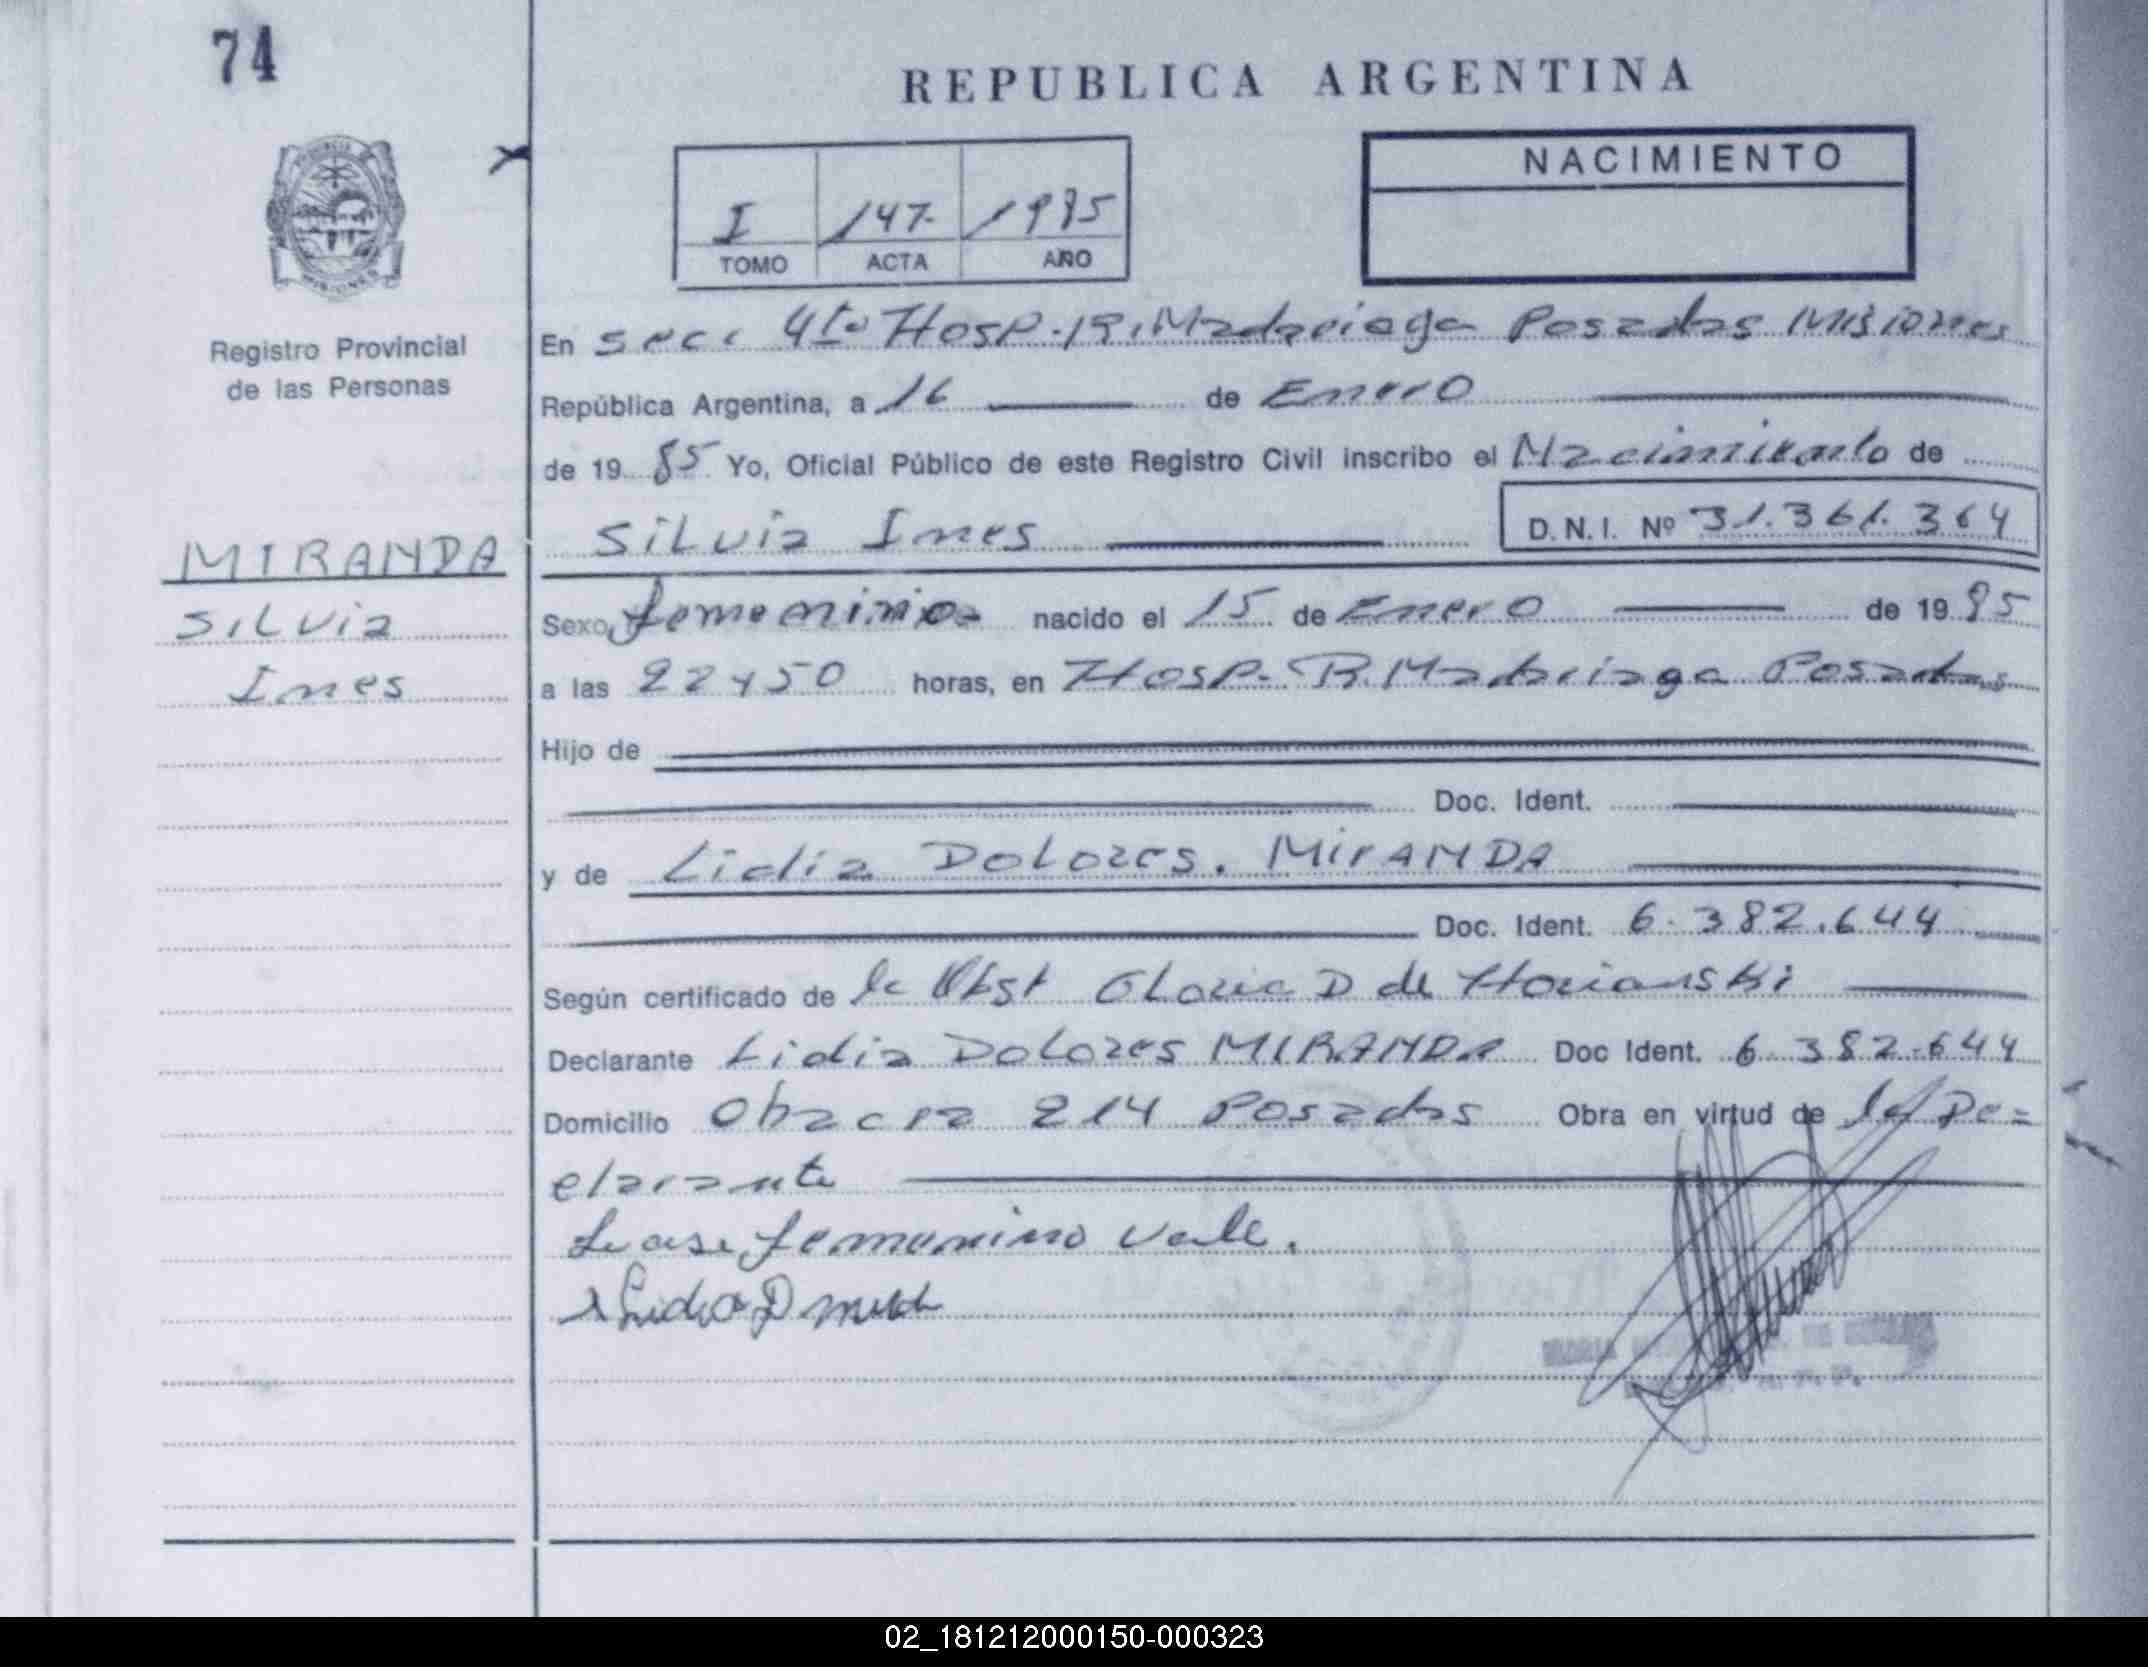 74
REPUBLICA ARGENTINA
NACIMIENTO
I 147- 1985
TOMO ACTA AÑO
Registro Provincial
de las Personas
En secc 4ta Hosp. R. Madariaga Posadas Misiones
República Argentina, a 16 de Enero
de 19 85 Yo, Oficial Público de este Registro Civil inscribo el Nacimiento de
MIRANDA
Silvia Ines D.N.I. Nº 31.361.364
Silvia
Sexo femenino nacido el 15 de Enero de 19 85
Ines
a las 22 y 50 horas, en Hosp. R. Madariaga Posadas
Hijo de
Doc. Ident.
y de Lidia Dolores. MIRANDA
Doc. Ident. 6.382.644
Según certificado de la Obst Gloria D de
Declarante Lidia Dolores MIRANDA Doc Ident. 6 382.644
Domicilio 214 Posadas Obra en virtud de la De=
clarante
Lease femenino vale.
MARIA DE
02_181212000150-000323